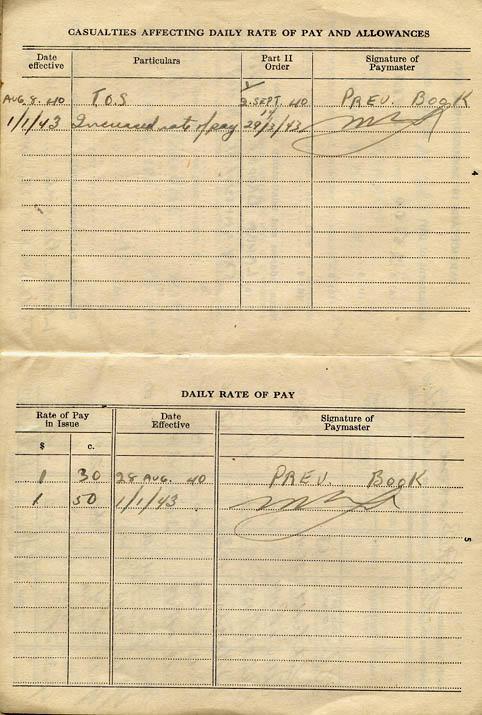 CASUALTIES AFFECTING DAILY RATE OF PAY AND ALLOWANCES
Date effective Particulars Part II Order Signature of Paymaster
AUG. 8. 40 T.O.S SEPT. 40 PREV. BOOK
1/1/43 Increased rate of pay
4
DAILY RATE OF PAY
Rate of Pay in Issue Date Effective Signature of Paymaster
$ c.
1 30 28 AUG. 40 PREV. BOOK
1 50 1/1/43
5